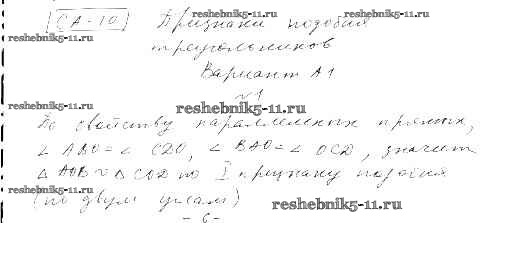 СА-10 Признаки подобия reshebnik5-11.ru reshebnik5-11.ru
reshebnik5-11.ru треугольников
Вариант А1
№1
reshebnik5-11.ru reshebnik5-11.ru reshebnik5-11.ru
По свойству параллельных прямых,
∠ ABO = ∠ CDO, ∠ BAO = ∠ OCD, значит
△ AOB ∾ △ COD по I признаку подобия
reshebnik5-11.ru (по двум углам) reshebnik5-11.ru
- 6 -